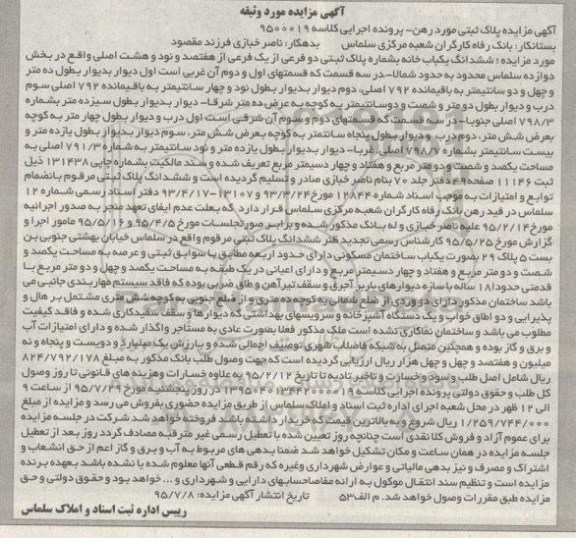 آگهی مزایده مورد وثیقه
آگهی مزایده پلاک ثبتی مورد رهن- پرونده اجرایی کلاسه ۹۵۰۰۰۱۹
بستانکار: بانک رفاه کارگران شعبه مرکزی سلماس بدهکار: ناصر خبازی فرزند مقصود
مورد مزایده: ششدانگ یکباب خانه بشماره پلاک ثبتی دو فرعی از یک فرعی از هفتصد و نود و هشت اصلی واقع در بخش
دوازده سلماس محدود به حدود شمالا- در سه قسمت که قسمتهای اول و دوم آن غربی است اول دیوار بدیوار بطول ده متر
و چهل و دو سانتیمتر به باقیمانده ۷۹۲ اصلی، دوم دیوار بدیوار بطول نود و چهار سانتیمتر به باقیمانده ۷۹۲ اصلی سوم
درب و دیوار بطول دو متر و شصت و دوسانتیمتر به کوچه به عرض ده متر شرقا- دیوار بدیوار بطول سیزده متر بشماره
۷۹۸/۳ اصلی جنوبا- در سه قسمت که قسمتهای دوم و سوم آن شرقی است اول درب و دیوار بطول چهار متر به کوچه
بعرض شش متر، دوم درب و دیوار بطول پنجاه سانتمتر به کوچه بعرض شش متر، سوم دیوار بدیوار بطول یازده متر و
بیست سانتیمتر بشماره ۷۹۸/۷ اصلی غربا- دیوار بدیوار بطول یازده متر و نود سانتیمتر به شماره ۷۹۱/۳ اصلی به
مساحت یکصد و شصت و دو متر مربع و هفتاد و چهار دسیمتر مربع تعریف شده و سند مالکیت بشماره چاپی ۱۳۱۴۳۸ ذیل
ثبت ۱۱۱۴۶ صفحه ۴۹ دفتر جلد ۷۰ بنام ناصر خبازی صادر و تسلیم گردیده است و ششدانگ پلاک ثبتی مرقوم بانضمام
توابع و امتیازات به موجب اسناد شماره ۱۲۸۴۴ مورخ ۹۳/۳/۲۴ و ۱۳۱۰۷-۹۳/۴/۱۷ دفتر اسناد رسمی شماره ۱۲
سلماس در قید رهن بانک رفاه کارگران شعبه مرکزی سلماس قرار دارد که بعلت عدم ایفای تعهد منجر به صدور اجرائیه
مورخ ۹۵/۲/۱۴ علیه ناصر خبازی و له بانک مذکور شده و برابر صورتجلسات مورخ ۹۵/۴/۵ و ۹۵/۵/۱۶ مامور اجرا و
گزارش مورخ ۹۵/۵/۲۵ کارشناس رسمی تجدید نظر ششدانگ پلاک ثبتی مرقوم واقع در سلماس خیابان بهشتی جنوبی بن
بست ۵ پلاک ۲۹ بصورت یکباب ساختمان مسکونی دارای حدود اربعه مطابق با سوابق ثبتی و عرصه به مساحت یکصد و
شصت و دو متر مربع و هفتاد و چهار دسیمتر مربع و دارای اعیانی در یک طبقه به مساحت یکصد و چهل و دو متر مربع با
قدمتی حدودا ۱۸ ساله با سازه دیوارهای باربر آجری و سقف تیرآهن و طاق ضربی بوده که فاقد سیستم مهاربندی جانبی می
باشد ساختمان مذکور دارای دو وردی از ضلع شمالی به کوچه ده متری و از ضلع جنوبی به کوچه شش متری مشتمل بر هال و
پذیرایی و دو اطاق خواب و یک دستگاه آشپزخانه و سرویسهای بهداشتی که دیوارها و سقف سفیدکاری شده و فاقد کیفیت
مطلوب می باشد و ساختمان نماکاری نشده است ملک مذکور فعلا بصورت عادی به مستاجر واگذار شده و دارای امتیازات آب
و برق و گاز بوده و همچنین متصل به شبکه فاضلاب شهری توصیف اجمالی شده و با ارزش یک میلیارد و دویست و پنجاه و نه
میلیون و هفتصد و چهل و چهل هزار ریال ارزیابی گردیده است که جهت وصول طلب بانک مذکور به مبلغ ۸۲۴/۷۹۲/۱۷۸
ریال شامل اصل طلب و سود و خسارت و تاخیر تادیه تا تاریخ ۹۵/۲/۱۲ به علاوه خسارات و هزینه های قانونی تا روز وصول
کل طلب و حقوق دولتی پرونده اجرایی کلاسه ۱۳۹۵۰۴۰۱۳۴۴۲۰۰۰۰۱۹ در روز پنجشنبه مورخ ۹۵/۷/۲۹ از ساعت ۹
الی ۱۲ ظهر در محل شعبه اجرای اداره ثبت اسناد و املاک سلماس از طریق مزایده حضوری بفروش می رسد و مزایده از مبلغ
۱/۲۵۹/۷۴۴/۰۰۰ ریال شروع و به بالاترین قیمت که خریدار داشته باشد فروخته خواهد شد شرکت در جلسه مزایده
برای عموم آزاد و فروش کلا نقدی است چنانچه روز تعیین شده با تعطیل رسمی غیر مترقبه مصادف گردد روز بعد از تعطیل
جلسه مزایده در همان ساعت و مکان تشکیل خواهد شد ضمنا بدهی های مربوط به آب و برق و گاز اعم از حق انشعاب و
اشتراک و مصرف و نیز بدهی مالیاتی و عوارض شهرداری وغیره که رقم قطعی آنها معلوم شده یا نشده باشد بعهده برنده
مزایده است و تنظیم سند انتقال موکول به ارائه مفاصاحسابهای دارایی و شهرداری و ... خواهد بود و حقوق دولتی و حق
مزایده طبق مقررات وصول خواهد شد. م الف ۵۳ تاریخ انتشار آگهی مزایده: ۹۵/۷/۸
رییس اداره ثبت اسناد و املاک سلماس